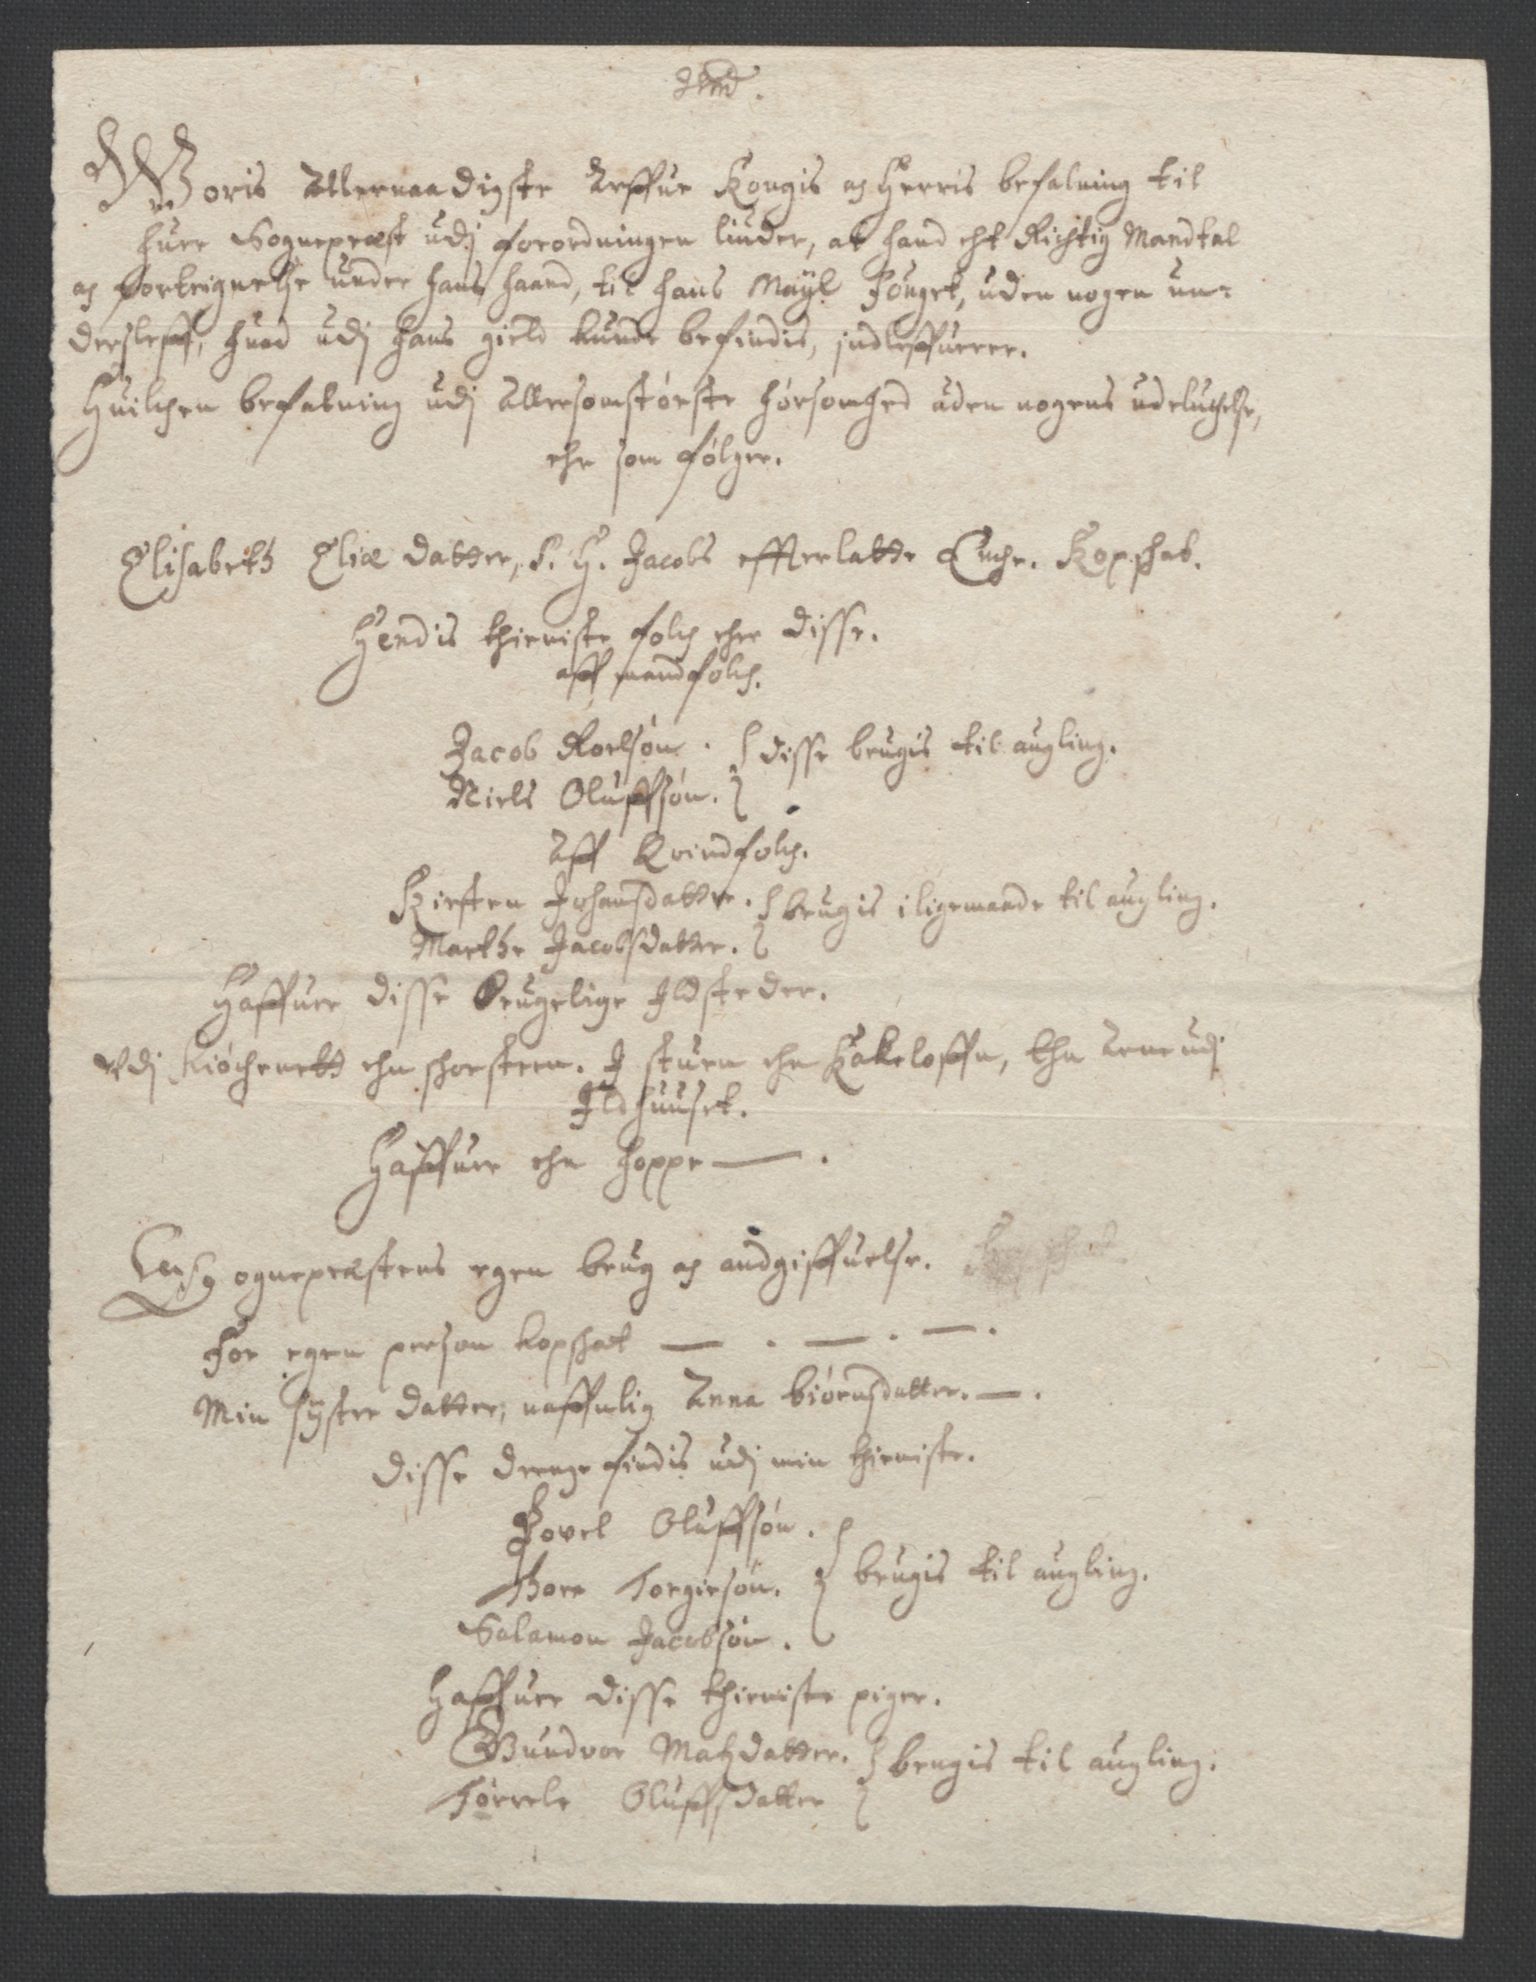 Woris Allernaadigste Arffue Kongis oc Herris befalning til
huer Sognepræst udj forordningen liuder, at hand eht Richtig Mandtal
oc forteignelse under hans haand, til hans Mayl Fouget, uden nogen un-
dersleff, huad udj hans gield kunde befindis, indleffuerer.
Huilchen befalning udj Allersomstørste hørsomhed uden nogens udeluchelse,
ehr som følger.
Elisabeth Eliæ datter, S. H. Jacobs effterlatte Enche. Kopschat.
Hendis thieniste folch ehre disse.
aff mandfolch.
Jacob Roelsøn. disse brugis til augling.
Niels Oluffsøn.
Aff Kvindfolch.
Kirsten Johansdatter. brugis i ligemaade til augling.
Marthe Jacobsdatter.
Haffuer disse brugelige Ildsteder.
Udj Kiøchenett ehn schorsteen. I stuen ehn Kakeloffn, Ehn Arne udj
Ildhuuset.
Haffuer ehn hoppe — .
Sognepræstens egen brug oc andgiffuelse.
For egen person kopschat — . — . — .
Min syster datter, naffnlig Anna biørnsdatter. — .
Disse drenge findis udj min thieniste.
Povel Oluffsøn.
Thore Torgiersøn. brugis til augling.
Salamon Jacobsøn.
Haffuer disse thieniste piger.
Gundvor Matzdatter. brugis til augling.
Tørrele Oluffsdatter